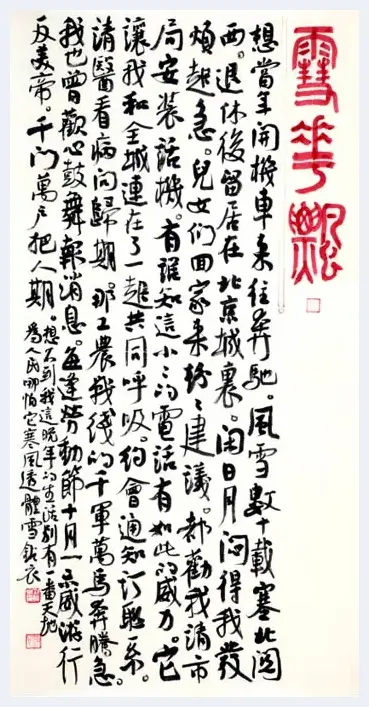 雪華飄
想當年開機車來往奔馳。風雪數十載塞北関
西。退休後留居在北京城裏。闲日月悶得我發
煩起急。兒女們回家來紛々建議。都勸我請市
局安裝話機。有誰知這小々的電話有如此的威力。它
讓我和全城連在了一起共同呼吸。約會通知订聯系。
請醫看病问歸期。那工農戰线的千軍萬馬奔騰急。
我也曾歡心鼓舞報消息。每逢勞動節十月一示威游行
反美帝。千门萬户把人期。想不到我這晚年的生活别有一番天地
為人民哪怕它寒風透體雪鉆衣